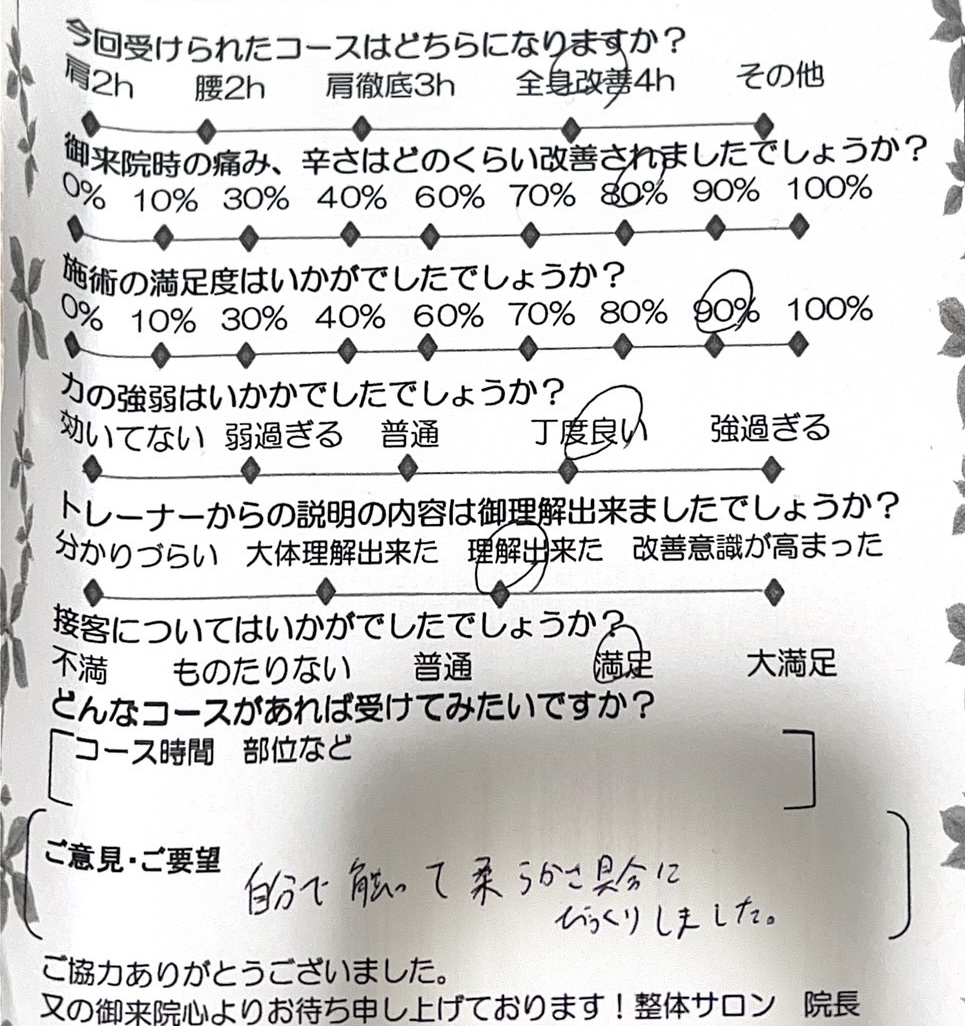 今回受けられたコースはどちらになりますか？
肩2h 腰2h 肩徹底3h 全身改善4h その他
御来院時の痛み、辛さはどのくらい改善されましたでしょうか？
0% 10% 30% 40% 60% 70% 80% 90% 100%
施術の満足度はいかがでしたでしょうか？
0% 10% 30% 40% 60% 70% 80% 90% 100%
力の強弱はいかかでしたでしょうか？
効いてない 弱過ぎる 普通 丁度良い 強過ぎる
トレーナーからの説明の内容は御理解出来ましたでしょうか？
分かりづらい 大体理解出来た 理解出来た 改善意識が高まった
接客についてはいかがでしたでしょうか？
不満 ものたりない 普通 満足 大満足
どんなコースがあれば受けてみたいですか？
コース時間 部位など
ご意見・ご要望
自分で触って柔らかさ具合に
びっくりしました。
ご協力ありがとうございました。
又の御来院心よりお待ち申し上げております！整体サロン 院長